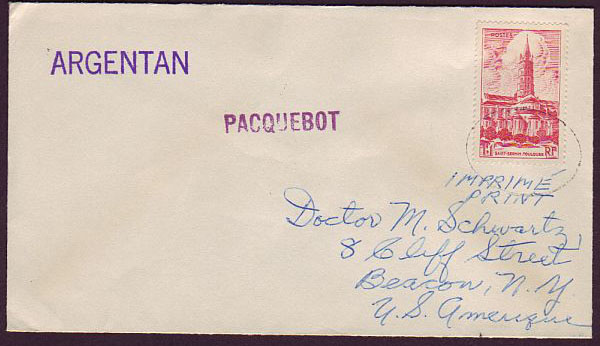 ARGENTAN
PACQUEBOT
POSTES
SAINT-SERNIN TOULOUSE RF
IMPRIMÉ
PRINT
Doctor M. Schwartz,
8 Cliff Street
Beacon, N.Y
U.S. Amerique